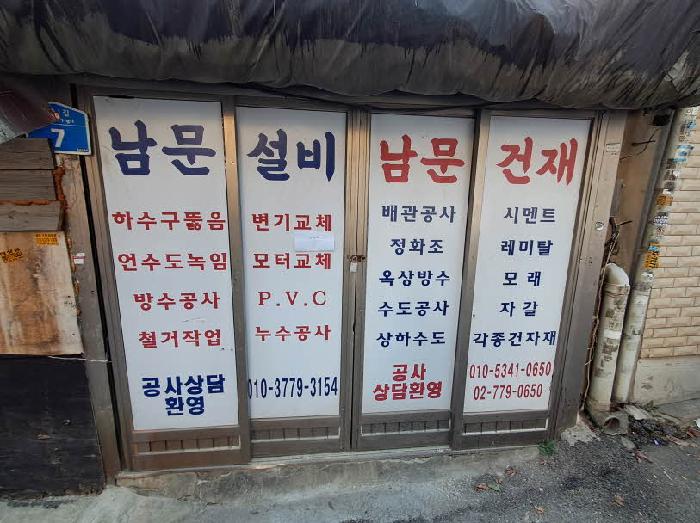 7
남문
하수구뚫음
언수도녹임
방수공사
철거작업
공사상담
환영
설비
변기교체
모터교체
P.V.C
누수공사
010-3779-3154
남문
배관공사
정화조
옥상방수
수도공사
상하수도
공사
상담환영
건재
시멘트
레미탈
모래
자갈
각종건자재
010-5341-0650
02-779-0650